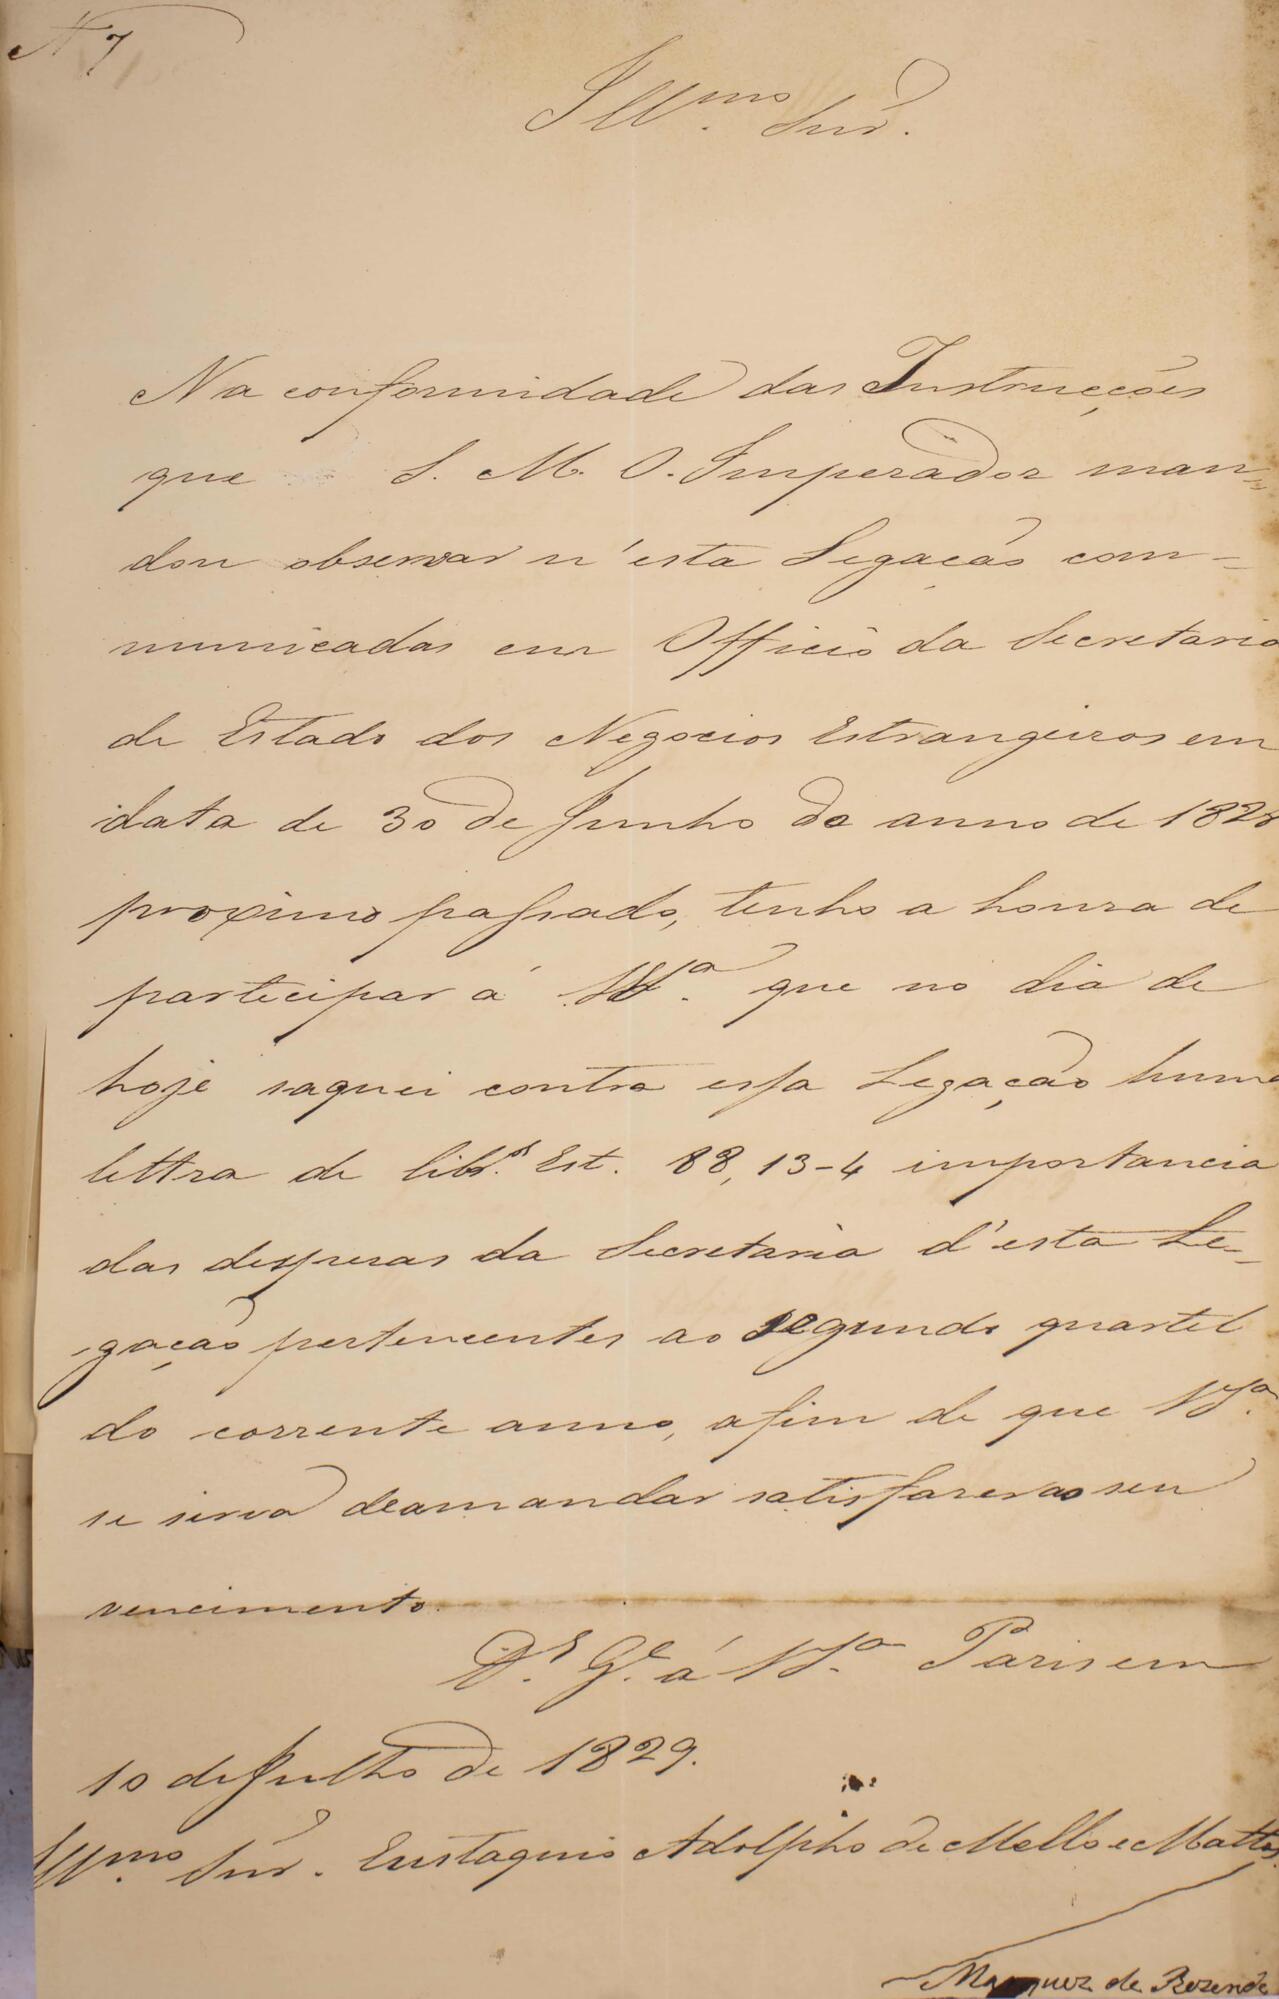 N 7
Illmo. Snr.
Na conformidade das Instrucções
que S. M. O. Imperador man=
dou observar n'esta Legação com=
municadas em Officio da Secretaria
de Estado dos Negocios Estrangeiros em
data de 30 de Junho do anno de 1828
proximo passado, tenho a honra de
participar á VSa. que no dia de
hoje saquei contra essa Legação huma
lettra de libs. Est. 88, 13-4 importancia
das despezas da Secretaria d'esta Le=
gação pertencentes ao segundo quartel
do corrente anno, afim de que VSa.
se sirva de a mandar satisfazer ao seu
vencimento.
Ds. Ge. á VSa. Paris em
10 de Julho de 1829.
Illmo. Snr. Eustaquio Adolpho de Mello e Mattos.
Marquez de Rezende